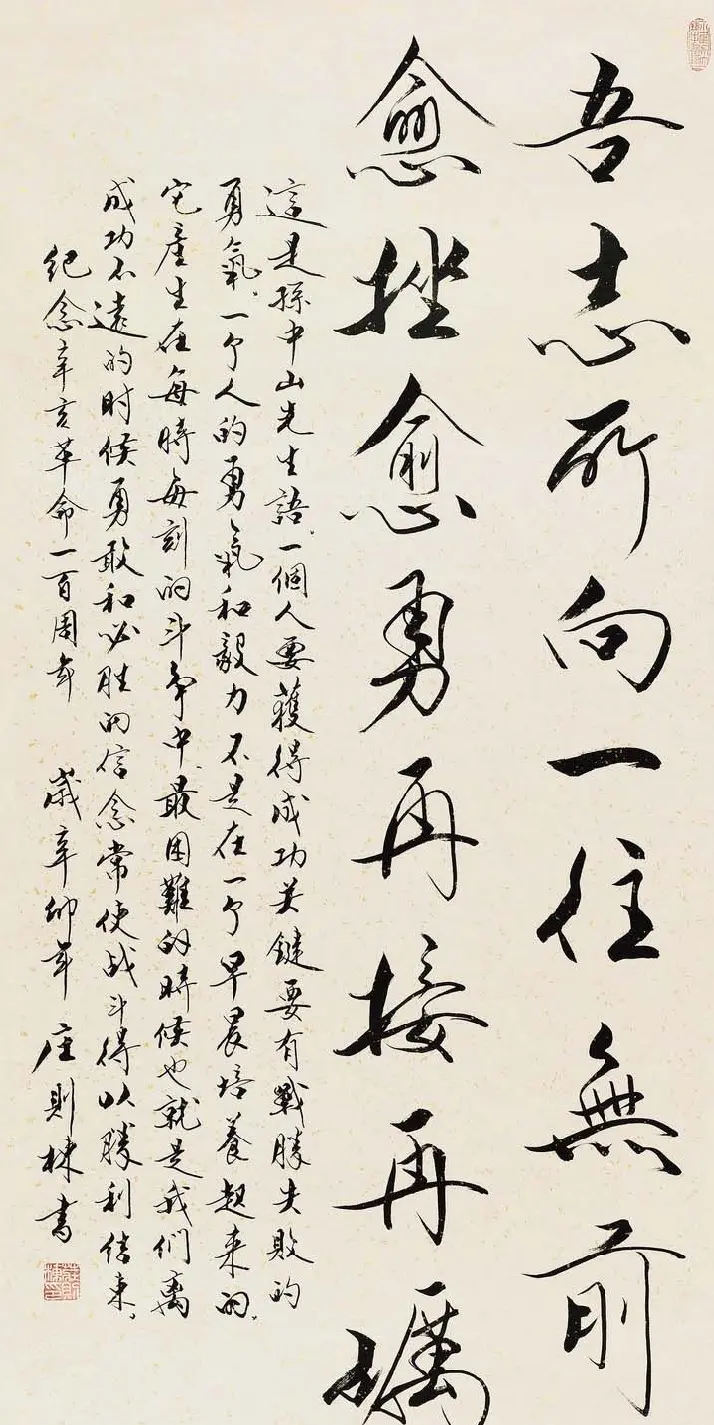 吾志所向一往無前
愈挫愈勇再接再礪
這是孫中山先生語。一個人要獲得成功关鍵要有戰勝失敗的
勇氣。一个人的勇氣和毅力不是在一个早晨培養起来的。
它産生在每時每刻的斗争中。最困難的時候也就是我们离
成功不遠的时候勇敢和必胜的信念常使战斗得以勝利结束。
纪念辛亥革命一百周年 歲辛卯年 庄則棟書